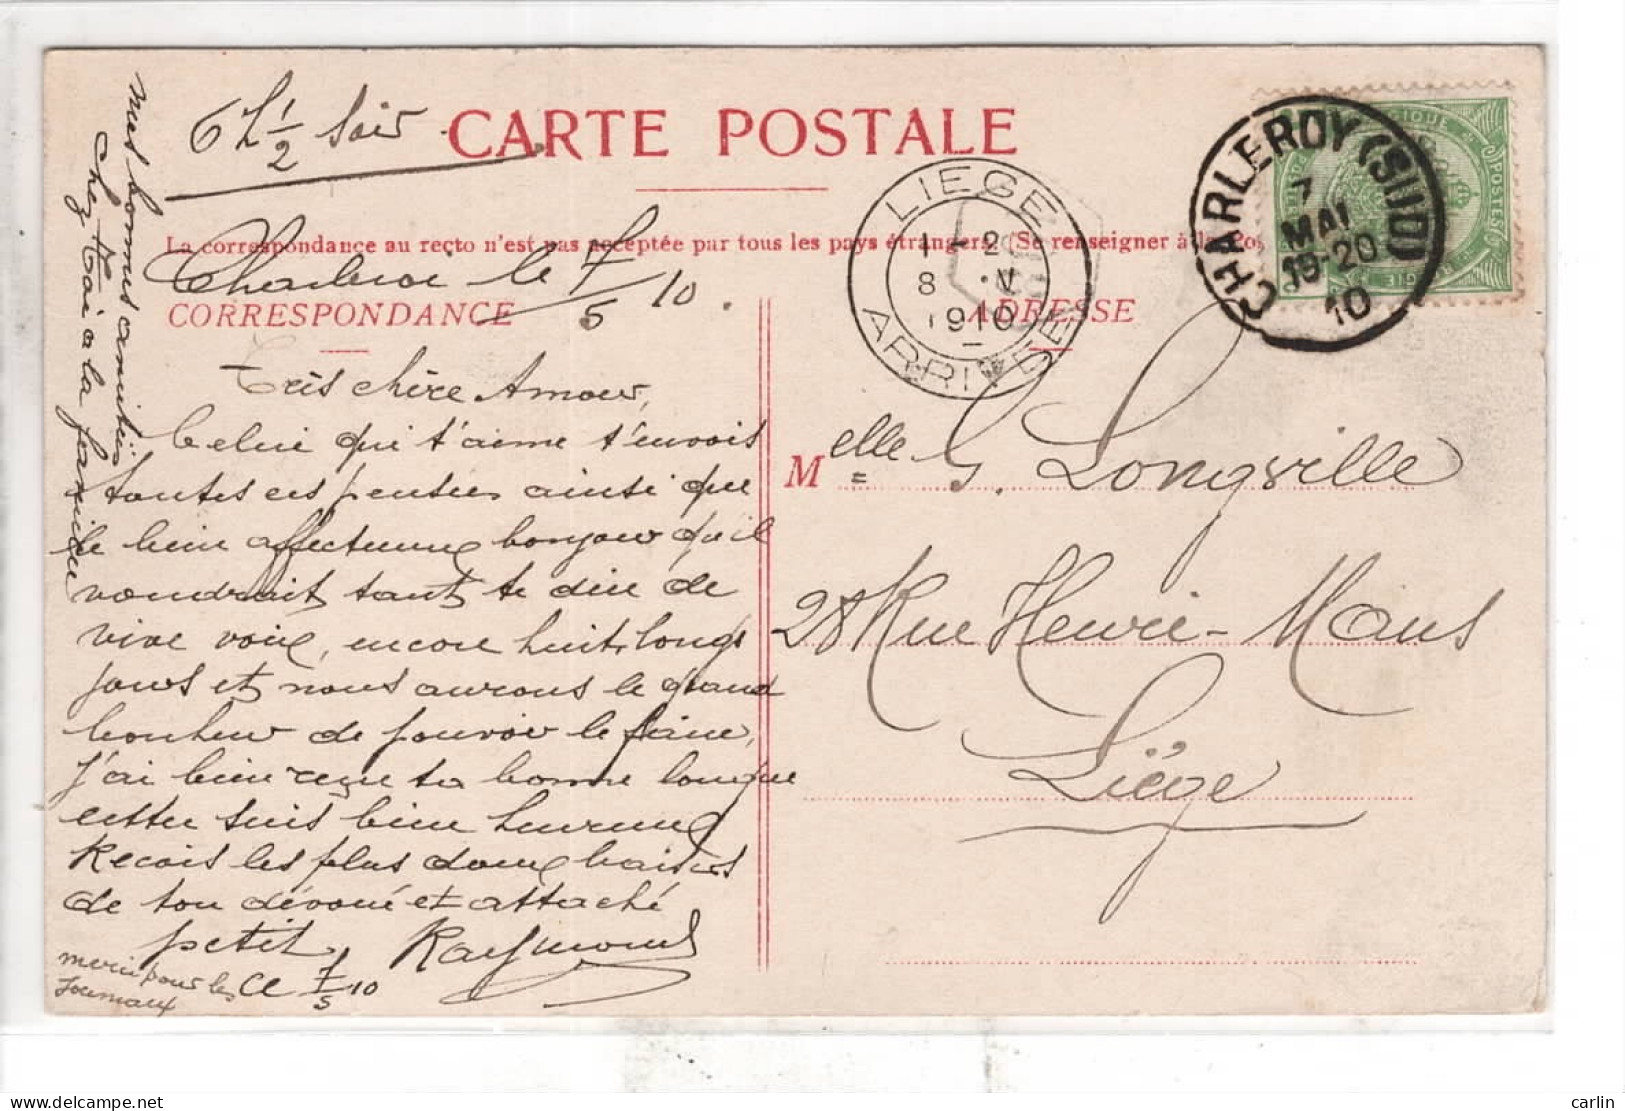 6 h 1/2 soir
CARTE POSTALE
La correspondance au recto n'est pas acceptée par tous les pays étrangers. (Se renseigner à la Pos
Charleroi le 7/5 10.
CORRESPONDANCE
ADRESSE
LIEGE
1-2
8 V
1910
ARRIVEE
CHARLEROY (SUD)
7
MAI
19-20
10
BELGIQUE
POSTES
Très chère Amour,
Celui qui t'aime t'envois
toutes ces pensées ainsi que
le bien affectueux bonjour qu'il
voudrait tant te dire de
vive voix, encore huit longs
jours et nous aurons le grand
bonheur de pouvoir le faire,
j'ai bien reçu ta bonne longue
lettre suis bien heureux
Recois les plus doux baisers
de ton dévoué et attaché
petit Raymond
Ce 7/5 10
merci pour les
Journaux
mes bonnes amitiés
chez toi a la
Melle G. Longville
28 Rue Henri-Maus
Liège
carlin